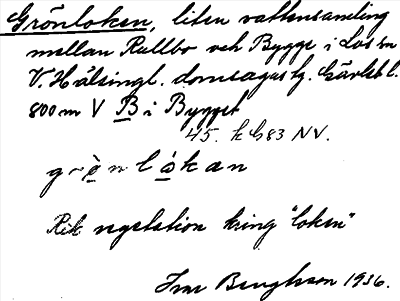 Grönloken, liten vattensamling
mellan Rullbo och Bygge i Los sn
V. Hälsingl. domsagas tg. Gävlebl.
800 m V B i Bygget
45. k G83 NV.
grö̀nlókan
Rik vegetation kring "loken"
Ivar Bengtsson 1936.